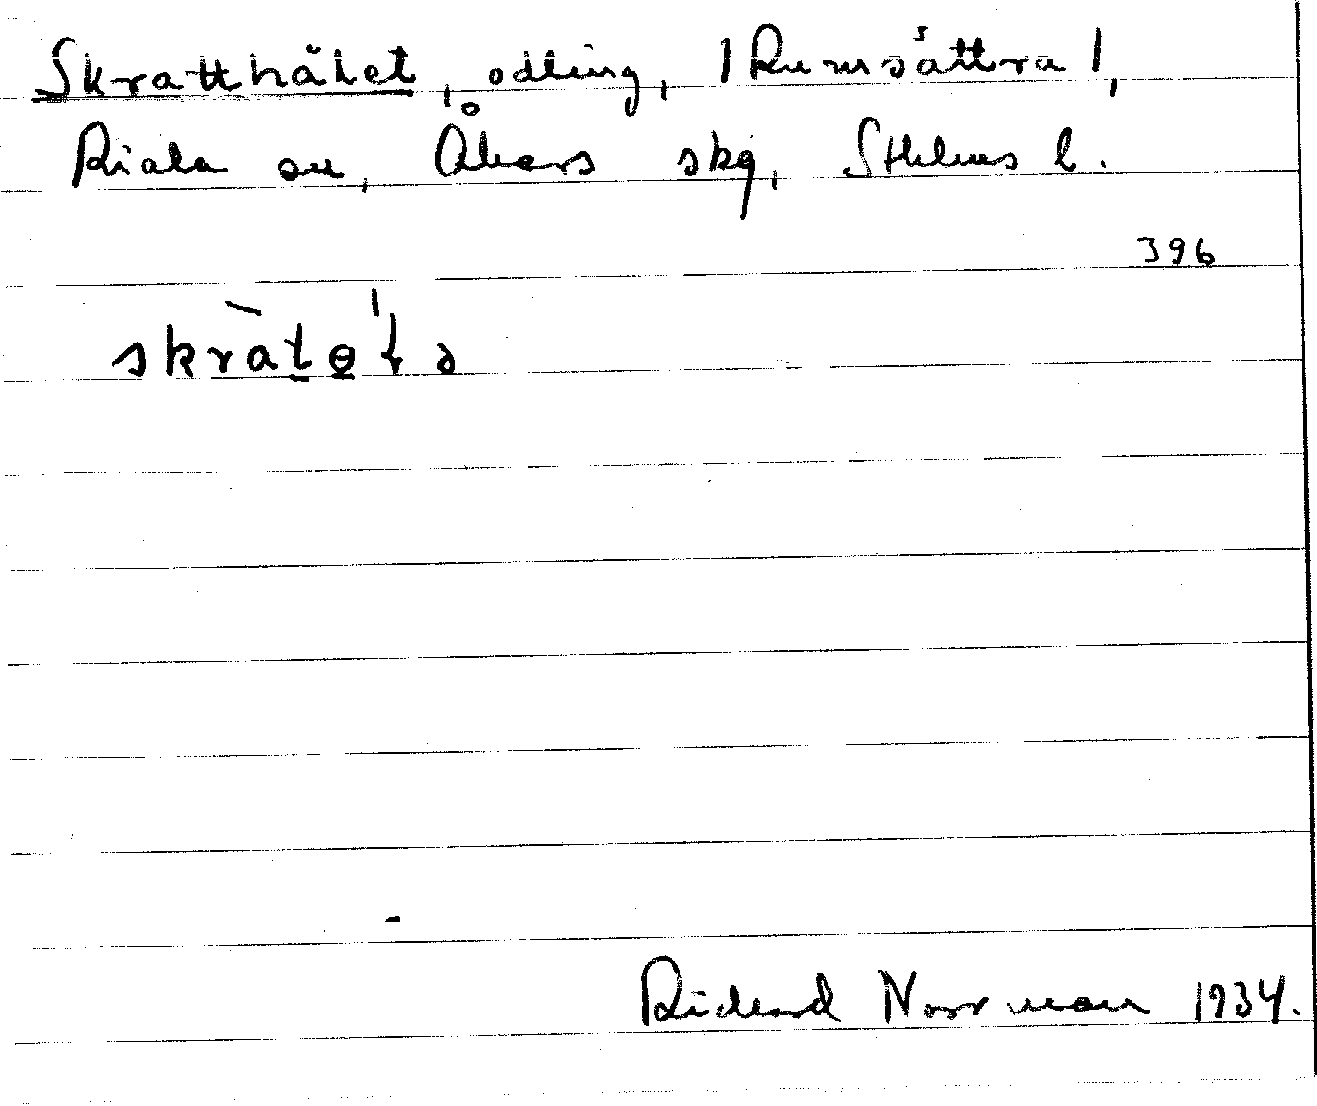 Skratthålet, odling, |Rumsättra|,
Riala sn, Åkers skg, Sthlms l.
396
skràt̲ɵ̲'łə
Richard Norrman 1934.